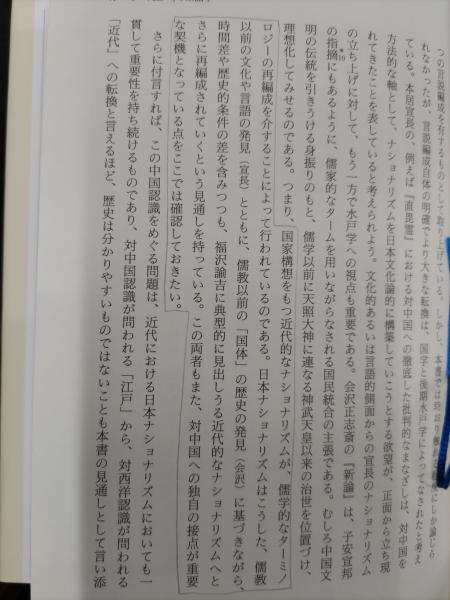 つの言説編成を有するものとして取り上げている。しかし、本書では
れなかったが、言説編成自体の明確でより大きな転換は、国学と後期水戸学によってなされたと考え
ている。本居宣長の、例えば『直毘霊』における対中国への徹底した批判的なまなざしは、対中国を
方法的な軸として、ナショナリズムを日本文化論的に構築していこうとする欲望が、正面から立ち現
れてきたことを表していると考えられよう。文化的あるいは言語的側面からの宣長のナショナリズム
の立ち上げに対して、もう一方で水戸学への視点も重要である。会沢正志斎の『新論』は、子安宣邦
の指摘にもあるように、儒家的なタームを用いながらなされる国民統合の主張である。むしろ中国文
*19
明の伝統を引きうける身振りのもと、儒学以前に天照大神に連なる神武天皇以来の治世を位置づけ、
理想化してみせるのである。つまり、国家構想をもつ近代的なナショナリズムが、儒学的なターミノ
ロジーの再編成を介することによって行われているのである。日本ナショナリズムはこうした、儒教
以前の文化や言語の発見（宣長）とともに、儒教以前の「国体」の歴史の発見（会沢）に基づきながら、
時間差や歴史的条件の差を含みつつも、福沢諭吉に典型的に見出しうる近代的なナショナリズムへと
さらに再編成されていくという見通しを持っている。この両者もまた、対中国への独自の接点が重要
な契機となっている点をここでは確認しておきたい。
さらに付言すれば、この中国認識をめぐる問題は、近代における日本ナショナリズムにおいても一
貫して重要性を持ち続けるものであり、対中国認識が問われる「江戸」から、対西洋認識が問われる
「近代」への転換と言えるほど、歴史は分かりやすいものではないことも本書の見通しとして言い添